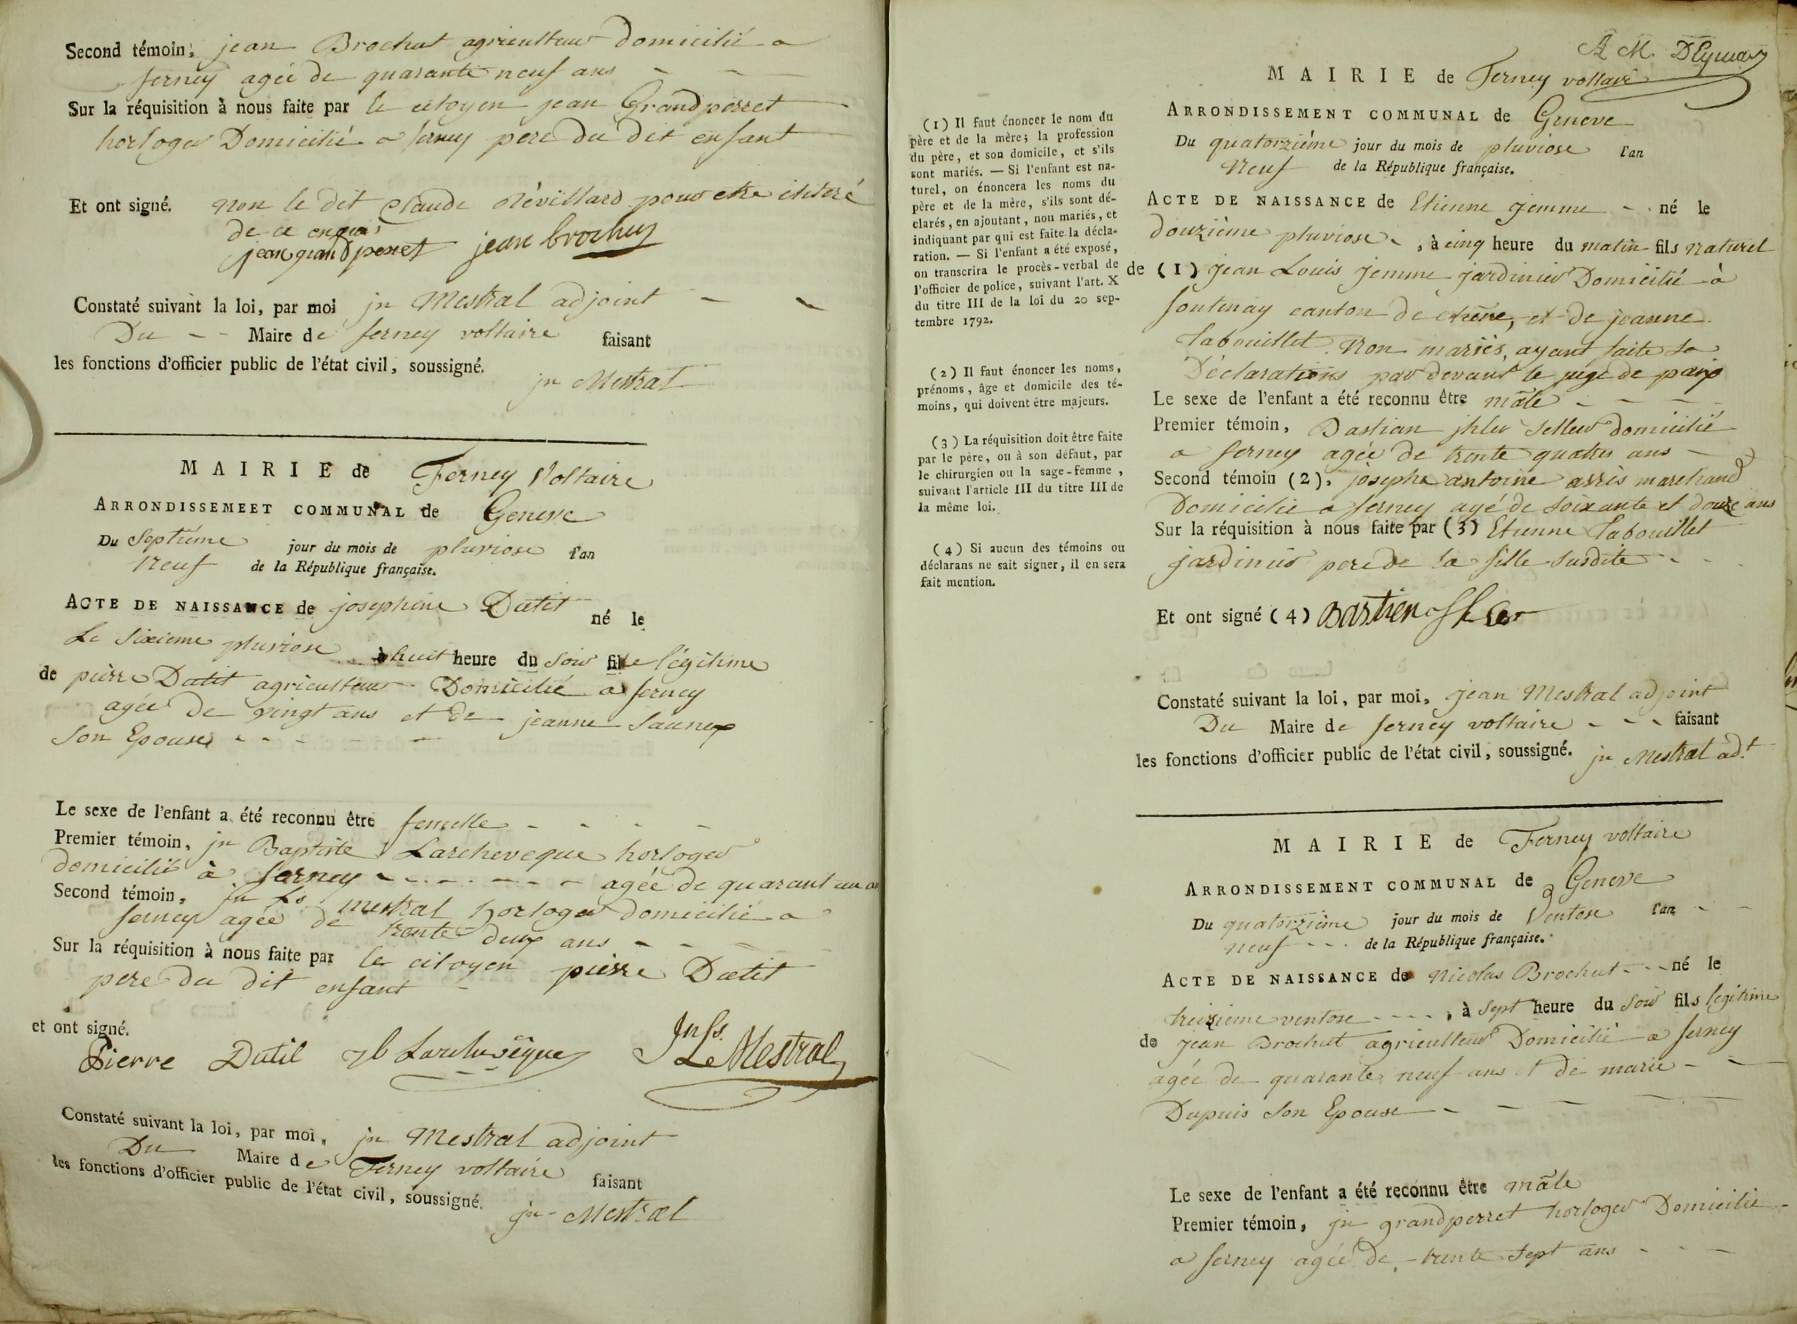 Second témoin, jean Brochut agriculteur domicilié a
ferney agée de quarante neuf ans - -
Sur la réquisition à nous faite par le citoyen jean Grandperret
horloger Domicilié a ferney pere du dit enfant
Et ont signé. non le dit Claude révillard pour etre illiteré
de ce enquis
jean grandperret jean brochuz
Constaté suivant la loi, par moi jn Mestral adjoint -
Du - - Maire de ferney voltaire faisant
les fonctions d'officier public de l'état civil, soussigné.
jn Mestral
MAIRIE de Ferney Voltaire
ARRONDISSEMEET COMMUNAL de Geneve
Du Septième jour du mois de pluviose l'an
Neuf de la République française.
ACTE DE NAISSANCE de josephine Datit né le
Le Sixieme pluviose à huit heure du Soir fille légitime
de pierre Datit agriculteur Domicilié a ferney
agée de vingt ans et de jeanne Saunex
Son Epouse - - - - -
Le sexe de l'enfant a été reconnu être femelle - - - -
Premier témoin, jn Baptiste Larcheveque horloger
domicilié à ferney - - - - - - agée de quarant un a
Second témoin, jn Ls mestral horloger domicilié a
ferney agée de trente deux ans - - -
Sur la réquisition à nous faite par le citoyen pierre Datit
pere du dit enfant -
et ont signé.
Pierre Datil Jb Larchevêque Jn Ls. Le Mestral
Constaté suivant la loi, par moi, jn Mestral adjoint
Du Maire de Ferney voltaire faisant
les fonctions d'officier public de l'état civil, soussigné.
jn Mestral
(1) Il faut énoncer le nom du
père et de la mère; la profession
du père, et son domicile, et s'ils
sont mariés. — Si l'enfant est na-
turel, on énoncera les noms du
père et de la mère, s'ils sont dé-
clarés, en ajoutant, non mariés, et
indiquant par qui est faite la décla-
ration. — Si l'enfant a été exposé,
on transcrira le procès-verbal de
l'officier de police, suivant l'art. X
du titre III de la loi du 20 sep-
tembre 1792.
(2) Il faut énoncer les noms,
prénoms, âge et domicile des té-
moins, qui doivent être majeurs.
(3) La réquisition doit être faite
par le père, ou à son défaut, par
le chirurgien ou la sage-femme,
suivant l'article III du titre III de
la même loi.
(4) Si aucun des témoins ou
déclarans ne sait signer, il en sera
fait mention.
MAIRIE de Ferney voltaire
ARRONDISSEMENT COMMUNAL de Geneve
Du quatorzième jour du mois de pluviose l'an
Neuf de la République française.
ACTE DE NAISSANCE de Etienne jemme - - né le
douzième pluviose -, à cinq heure du matin fils naturel
de (1) jean Louis jemme jardinier Domicilié à
fontenay canton de chêne, et de jeanne
Tabouillet. Non mariés, ayant faite sa
Déclarations par devant le juge de paix
Le sexe de l'enfant a été reconnu être mâle - - - -
Premier témoin, Bastian jhler Sellier domicilié
a ferney agée de trente quatre ans -
Second témoin (2), joseph antoine arris marchand
Domicilié a ferney agé de Soixante et douze ans
Sur la réquisition à nous faite par (3) Etienne Tabouillet
jardinier pere de la fille Susdite - - -
Et ont signé (4) Bastien
Constaté suivant la loi, par moi, jean Mestral adjoint
Du Maire de ferney voltaire - - - faisant
les fonctions d'officier public de l'état civil, soussigné. jn Mestral adt
MAIRIE de Ferney voltaire
ARRONDISSEMENT COMMUNAL de Geneve
Du quatorzième jour du mois de Ventose l'an - -
neuf - - - de la République française.
ACTE DE NAISSANCE de Nicolas Brochut - - né le
treizieme ventose - - - -, à Sept heure du Soir fils légitime
de jean Brochut agriculteur Domicilié a ferney
agée de quarante neuf ans et de marie - -
Dupuis Son Epouse - - - - -
Le sexe de l'enfant a été reconnu être mâle
Premier témoin, jn grandperret horloger Domicilié -
a ferney agée de - trente Sept ans - - -